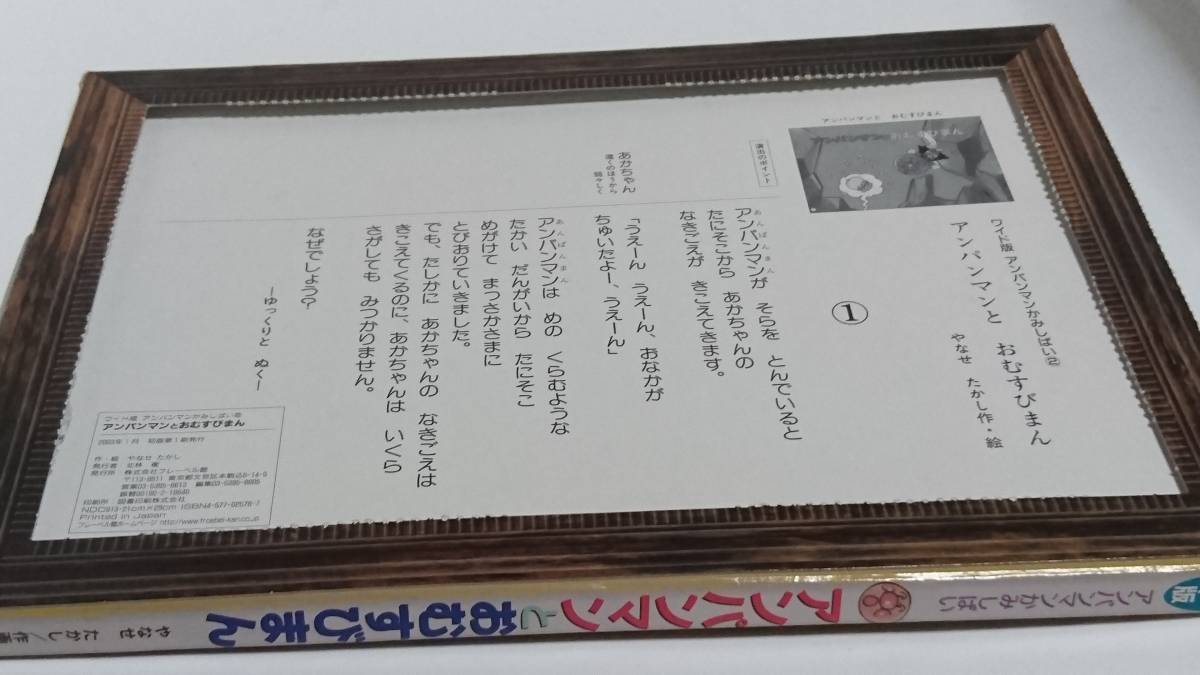 アンパンマンと おむすびまん
ワイド版 アンパンマンかみしばい②
アンパンマンと おむすびまん
やなせ たかし作・絵
①
演出のポイント
アンパンマンが そらを とんでいると
たにそこから あかちゃんの
なきごえが きこえてきます。
あかちゃん
遠くのほうから
弱々しく
「うえーん うえーん、おなかが
ちゅいたよー、うえーん」
アンパンマンは めの くらむような
たかい だんがいから たにそこ
めがけて まっさかさまに
とびおりていきました。
でも、たしかに あかちゃんの なきごえは
きこえてくるのに、あかちゃんは いくら
さがしても みつかりません。
なぜでしょう?
―ゆっくりと ぬく―
ワイド版 アンパンマンかみしばい②
アンパンマンとおむすびまん
2003年1月 初版第1刷発行
作・絵 やなせ たかし
発行者 北林 衞
発行所 株式会社フレーベル館
〒113-8611 東京都文京区本駒込6-14-9
印刷所 図書印刷株式会社
NDC913・21cm×29cm ISBN4-577-02578-7
Printed in Japan
フレーベル館ホームページ http://www.froebel-kan.co.jp
版
アンパンマンかみしばい
アンパンマンとおむすびまん
やなせ たかし/作画